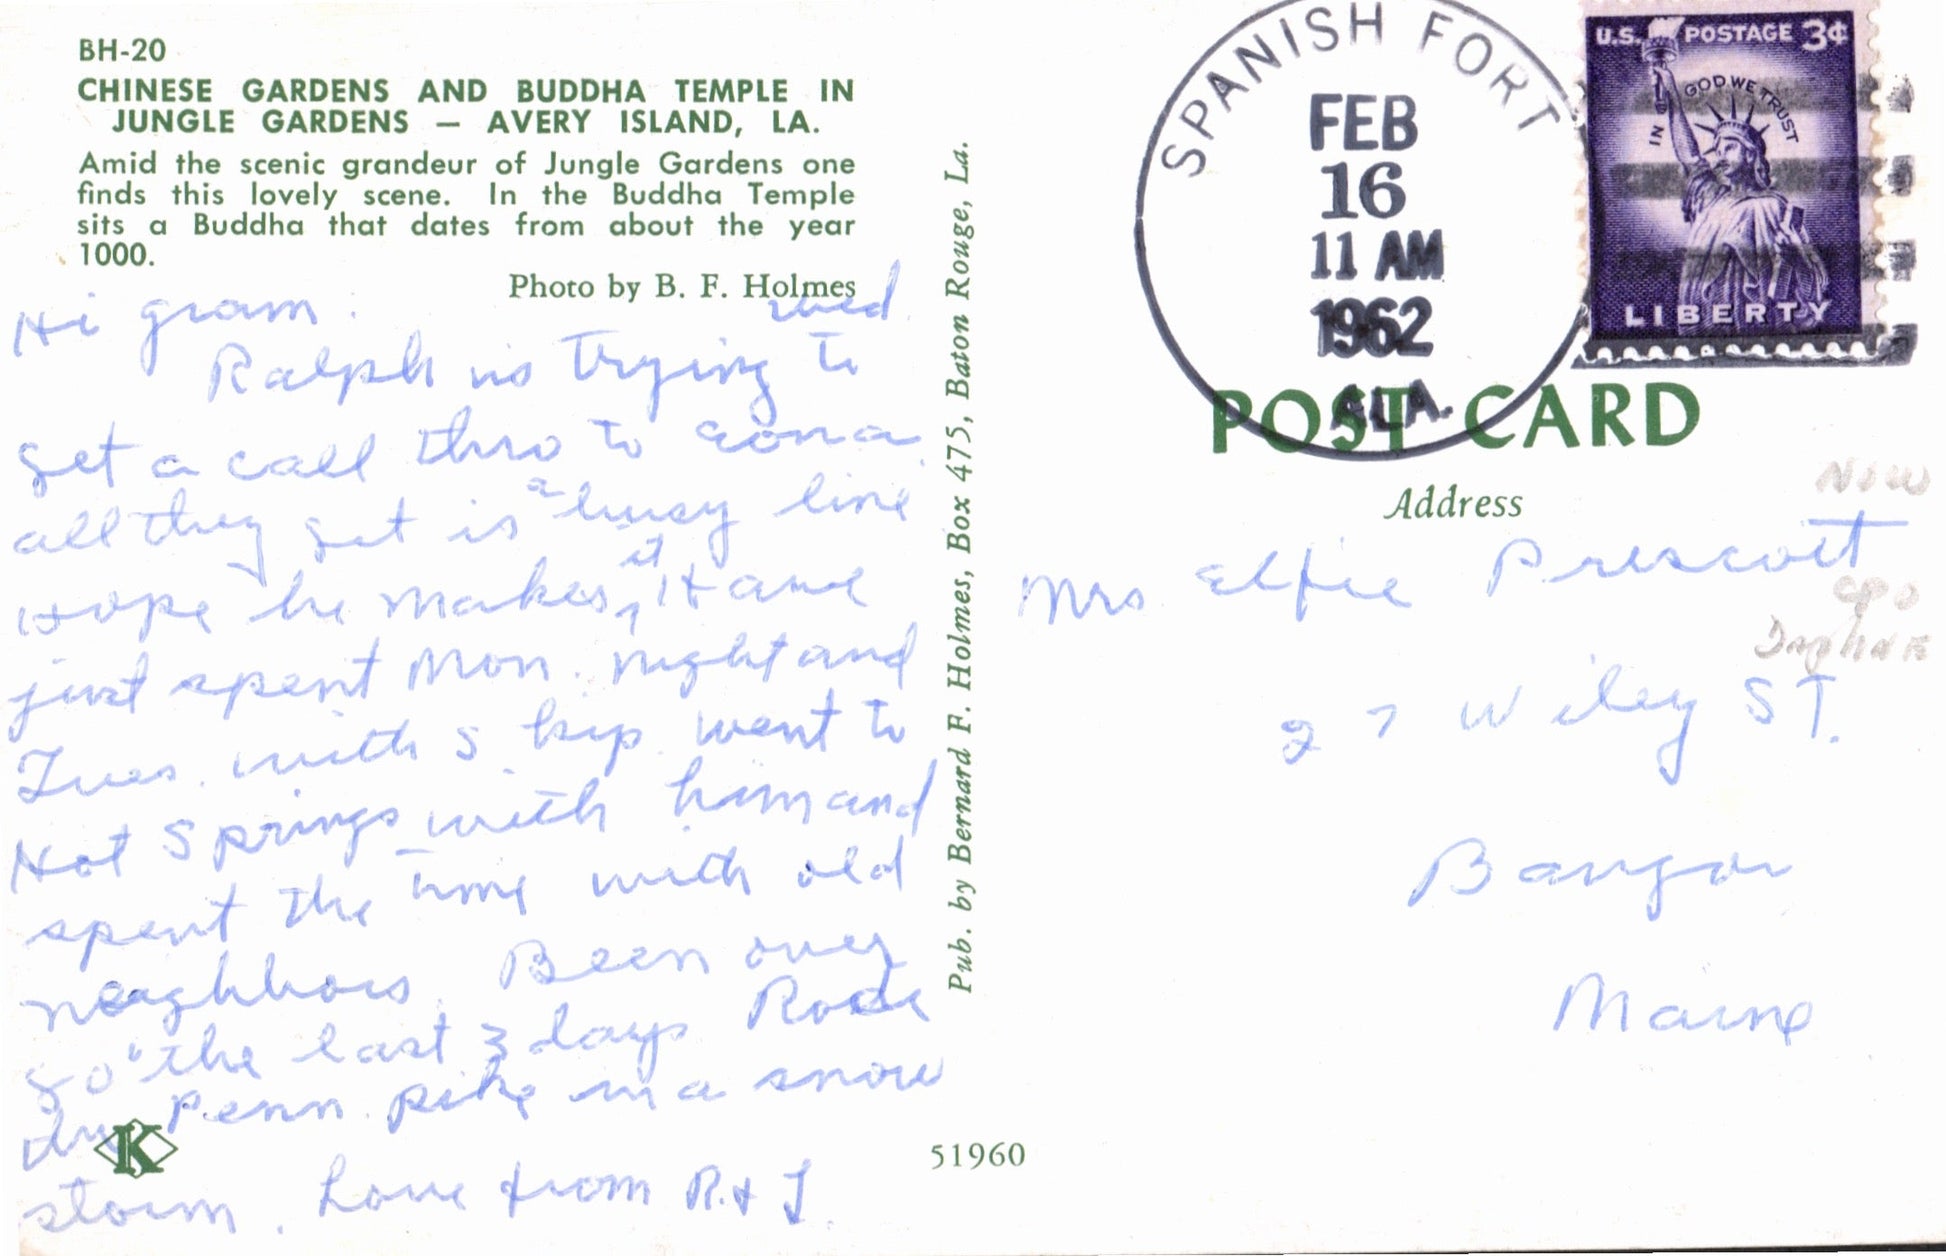 BH-20
CHINESE GARDENS AND BUDDHA TEMPLE IN
JUNGLE GARDENS — AVERY ISLAND, LA.
Amid the scenic grandeur of Jungle Gardens one
finds this lovely scene. In the Buddha Temple
sits a Buddha that dates from about the year
1000.
Photo by B. F. Holmes
Hi gram. Wed
Ralph is trying to
get a call thro to Eona
all they get is a busy line
Hope he makes it. H and
just spent Mon. night and
Tues. with Skip. went to
Hot Springs with him and
spent the time with old
neaghbors. Been over
80 the last 3 days Rode
the Penn. pike in a snow
storm. Love from R. & J.
Pub. by Bernard F. Holmes, Box 475, Baton Rouge, La.
51960
K
SPANISH FORT
FEB
16
11 AM
1962
ALA.
U.S. POSTAGE 3¢
IN GOD WE TRUST
LIBERTY
POST CARD
Address
Now
Mrs Elfie Prescott
CPO
Daphne
27 Wiley ST.
Bangor
Maine